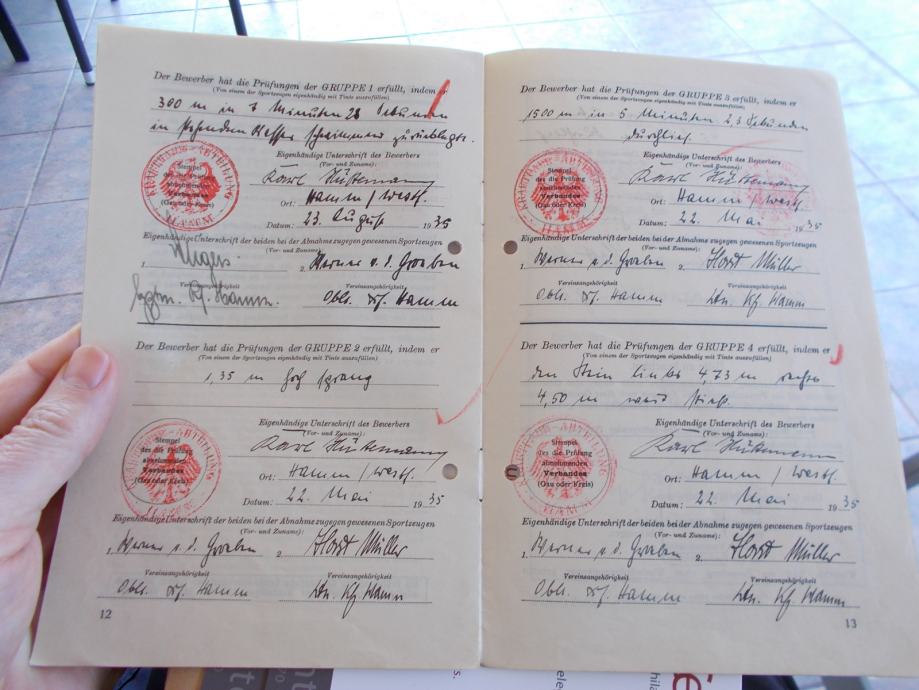 Der Bewerber hat die Prüfungen der GRUPPE 1 erfüllt, indem er
(Von einem der Sportzeugen eigenhändig mit Tinte auszufüllen)
300 m in 7 Minuten 28 Sekunden
in stehendem Wasser schwimmend zurücklegte.
KRAFTFAHR-ABTEILUNG
HAMM
Stempel
des die Prüfung
abnehmenden
Verbandes
(Gau oder Kreis)
Eigenhändige Unterschrift des Bewerbers
(Vor- und Zuname):
Karl Hüstemann
Ort: Hamm / Westf.
Datum: 23. August 1935
Eigenhändige Unterschrift der beiden bei der Abnahme zugegen gewesenen Sportzeugen
(Vor- und Zuname):
1. 2. Werner v. d. Groeben
Vereinsangehörigkeit Vereinsangehörigkeit
Hamm. Oblt. Kf. Hamm
Der Bewerber hat die Prüfungen der GRUPPE 2 erfüllt, indem er
(Von einem der Sportzeugen eigenhändig mit Tinte auszufüllen)
1,35 m hoch sprang
KRAFTFAHR-ABTEILUNG
HAMM
Stempel
des die Prüfung
abnehmenden
Verbandes
(Gau oder Kreis)
Eigenhändige Unterschrift des Bewerbers
(Vor- und Zuname):
Karl Hüstemann
Ort: Hamm / Westf.
Datum: 22. Mai 1935
Eigenhändige Unterschrift der beiden bei der Abnahme zugegen gewesenen Sportzeugen
(Vor- und Zuname):
1. Werner v. d. Groeben 2. Horst Müller
Vereinsangehörigkeit Vereinsangehörigkeit
Oblt. Kf. Hamm Ltn. Kf. Hamm
12
Der Bewerber hat die Prüfungen der GRUPPE 3 erfüllt, indem er
(Von einem der Sportzeugen eigenhändig mit Tinte auszufüllen)
1500 m in 5 Minuten 2,3 Sekunden
durchlief.
KRAFTFAHR-ABTEILUNG
HAMM
Stempel
des die Prüfung
abnehmenden
Verbandes
(Gau oder Kreis)
Eigenhändige Unterschrift des Bewerbers
(Vor- und Zuname):
Karl Hüstemann
Ort: Hamm / Westf.
Datum: 22. Mai 1935
Eigenhändige Unterschrift der beiden bei der Abnahme zugegen gewesenen Sportzeugen
(Vor- und Zuname):
1. Werner v. d. Groeben 2. Horst Müller
Vereinsangehörigkeit Vereinsangehörigkeit
Oblt. Kf. Hamm Ltn. Kf. Hamm
Der Bewerber hat die Prüfungen der GRUPPE 4 erfüllt, indem er
(Von einem der Sportzeugen eigenhändig mit Tinte auszufüllen)
den Stein links 4,73 m rechts
4,50 m weit stieß.
KRAFTFAHR-ABTEILUNG
HAMM
Stempel
des die Prüfung
abnehmenden
Verbandes
(Gau oder Kreis)
Eigenhändige Unterschrift des Bewerbers
(Vor- und Zuname):
Karl Hüstemann
Ort: Hamm / Westf.
Datum: 22. Mai 1935
Eigenhändige Unterschrift der beiden bei der Abnahme zugegen gewesenen Sportzeugen
(Vor- und Zuname):
1. Werner v. d. Groeben 2. Horst Müller
Vereinsangehörigkeit Vereinsangehörigkeit
Oblt. Kf. Hamm Ltn. Kf. Hamm
13